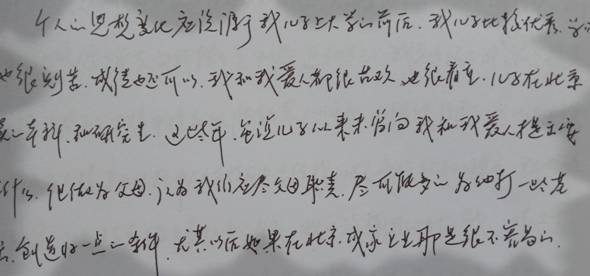 个人的思想变化应该源于我儿子上大学的前后.我儿子比较优秀.学习
也很刻苦.成绩也还可以.我和我爱人都很喜欢也很看重.儿子在北京
读的本科.和研究生.这些年.虽说儿子从来未曾向我和我爱人提出要
什么.但做为父母.认为我们应尽父母职责.尽可能多的为他打一些基
础.创造好一点的条件.尤其以后如果在北京.成家立业那是很不容易的.